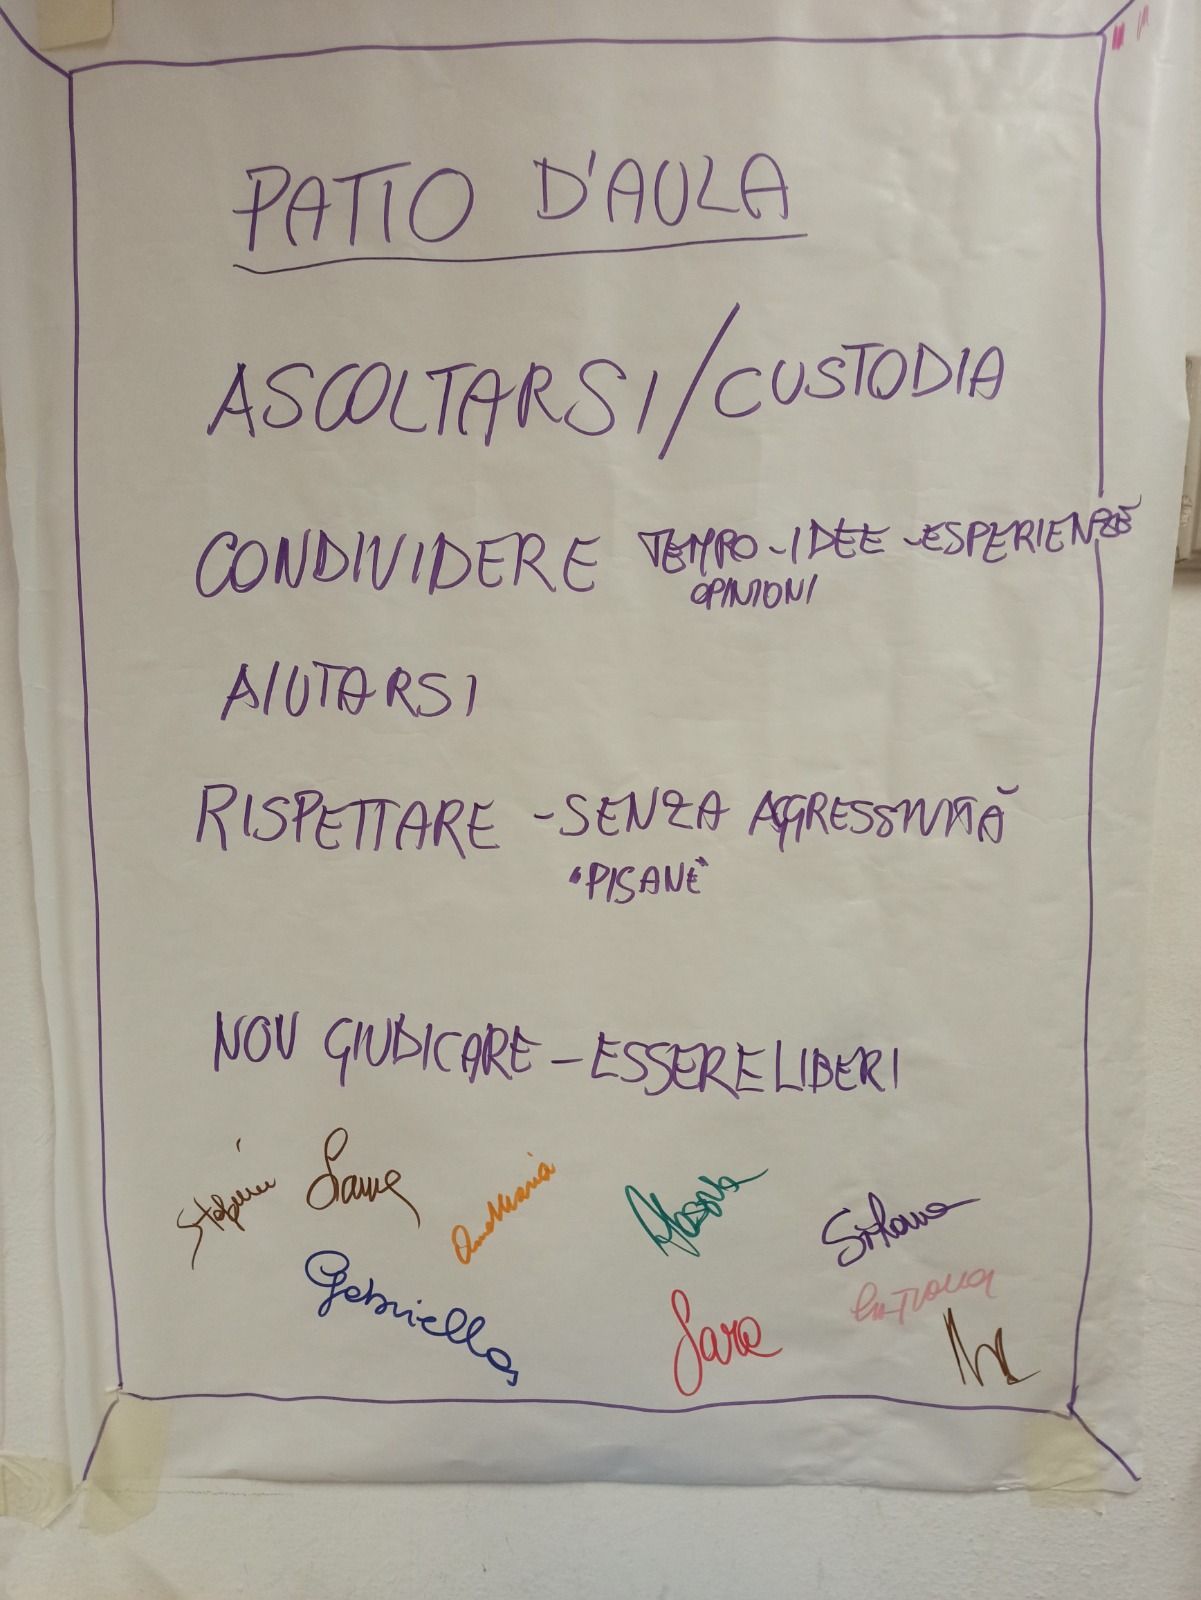 PATIO D'AULA
ASCOLTARSI/CUSTODIA
CONDIVIDERE TEMPO-IDEE-ESPERIENZE
OPINIONI
AIUTARSI
RISPETTARE - SENZA AGGRESSIVITÀ
"PISANE"
NON GIUDICARE - ESSERE LIBERI
AnnaMaria
Silvana
Gabriella
Sara